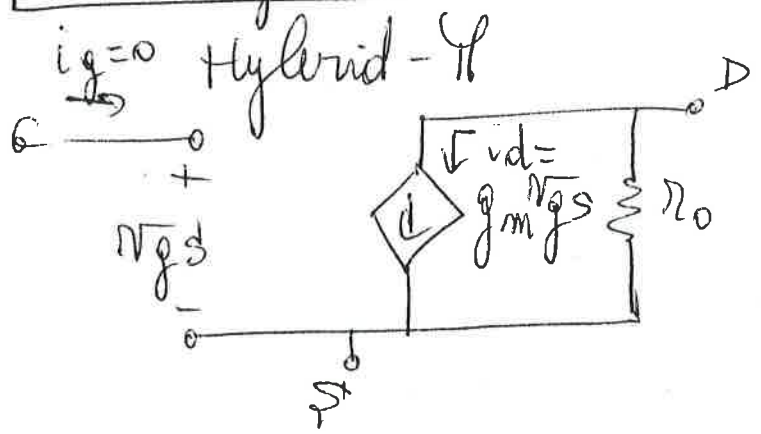 ig=0 Hybrid-π
D
G
+
id=
vgs
gm vgs
ro
-
S